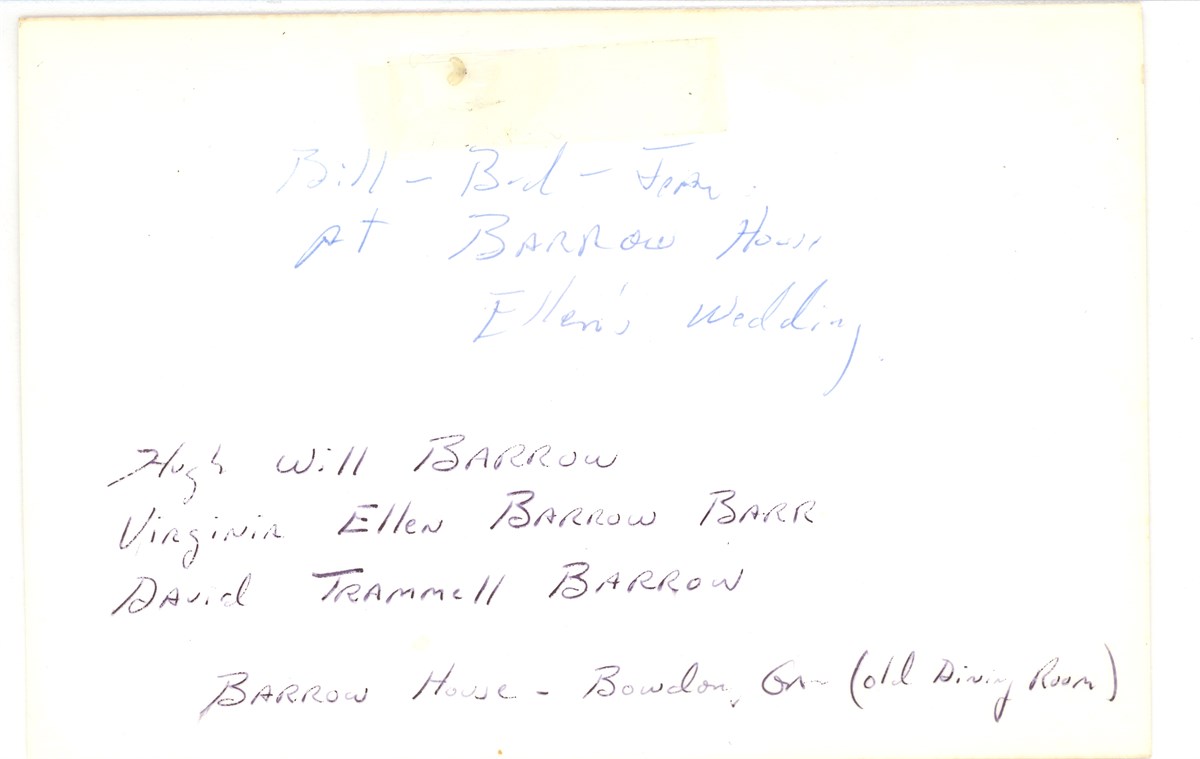 Bill - Bud -
at BARROW House
Ellen's Wedding
Hugh Will BARROW
Virginia Ellen BARROW BARR
David TRAMMell BARROW
BARROW House - Bowdon, GA - (old Dining Room)